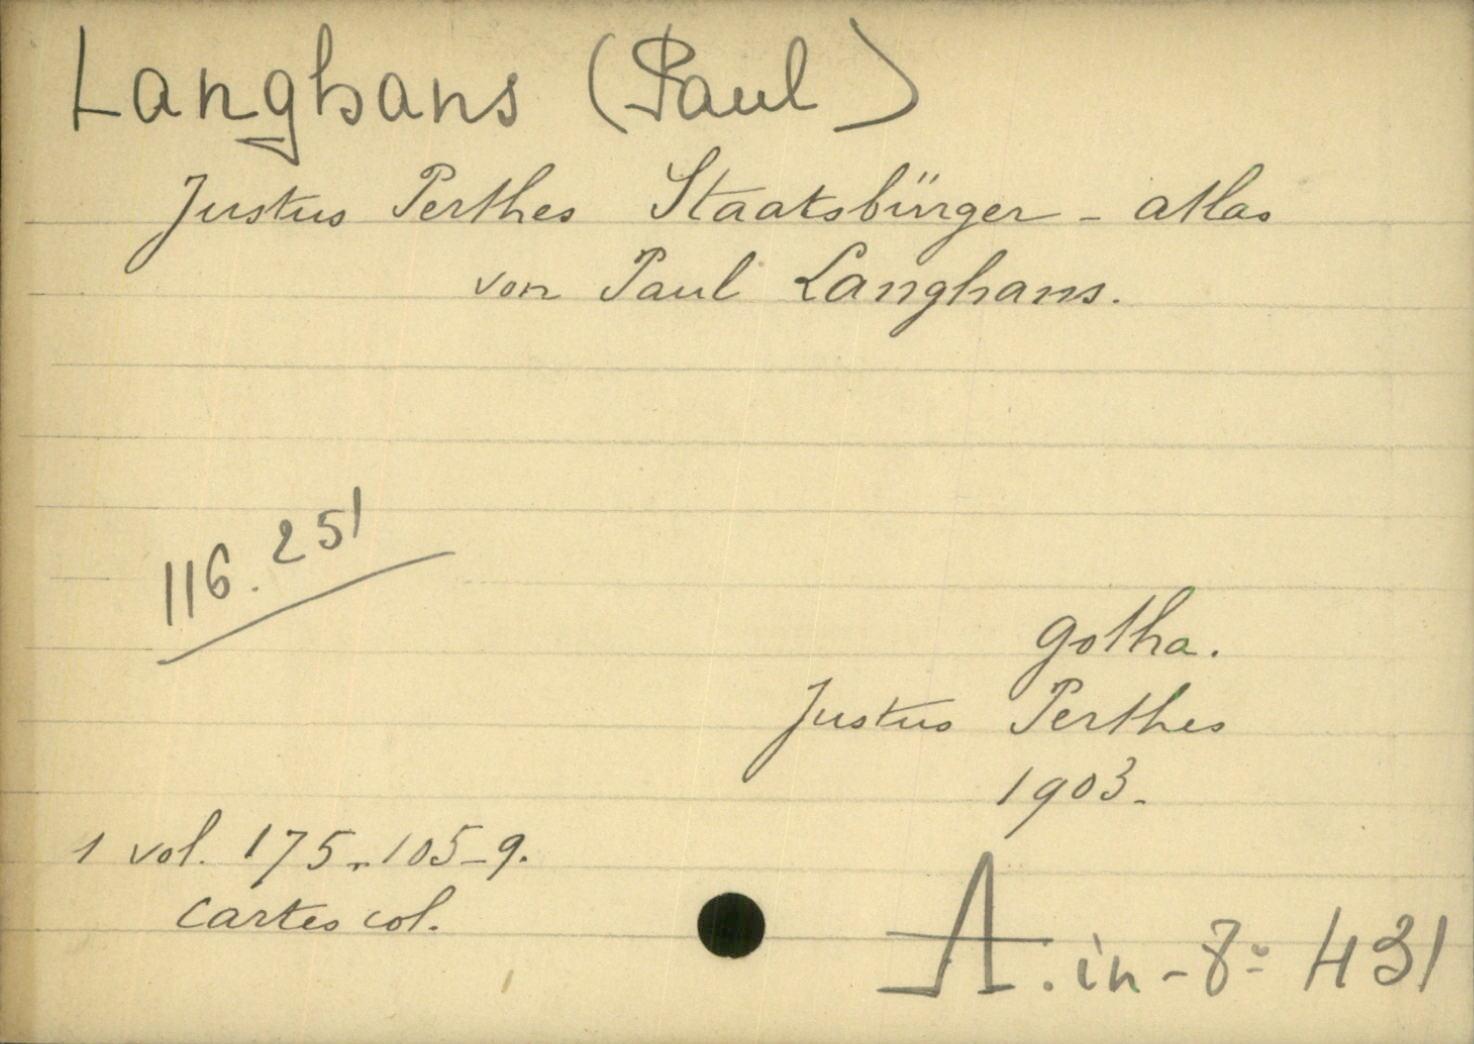 Langhans (Paul)
Justus Perthes Staatsbürger - atlas
von Paul Langhans.
116.251
Gotha.
Justus Perthes
1903.
1 vol. 175-105-9.
Cartes col.
A. in-8º 431